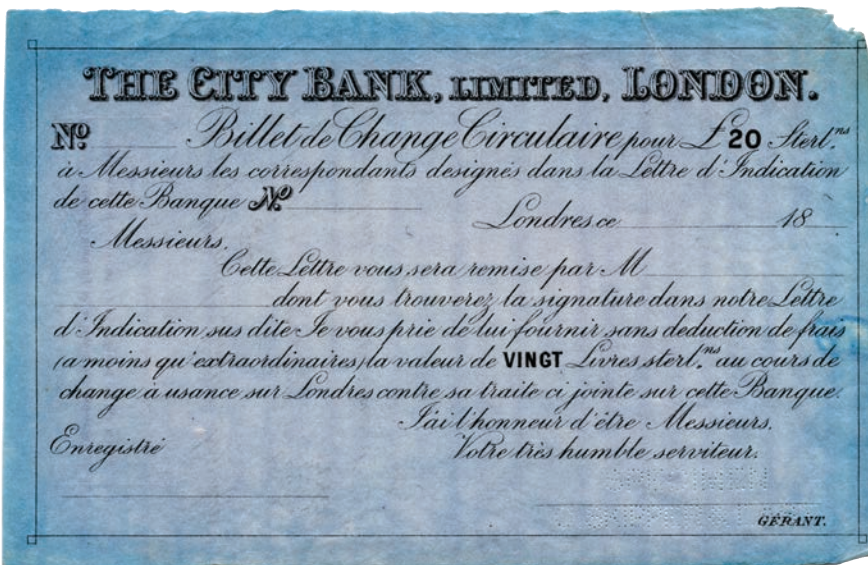 THE CITY BANK, LIMITED, LONDON.
No Billet de Change Circulaire pour £ 20 Sterl.ns
à Messieurs les correspondants designés dans la Lettre d'Indication
de cette Banque No
Londres, ce 18
Messieurs.
Cette Lettre vous sera remise par M
dont vous trouverez la signature dans notre Lettre
d'Indication sus dite Je vous prie de lui fournir sans deduction de frais
(a moins qu'extraordinaires) la valeur de VINGT Livres sterl.ns au cours de
change à usance sur Londres contre sa traite ci jointe sur cette Banque.
J'ai l'honneur d'être Messieurs.
Enregistré Votre très humble serviteur.
GÉRANT.